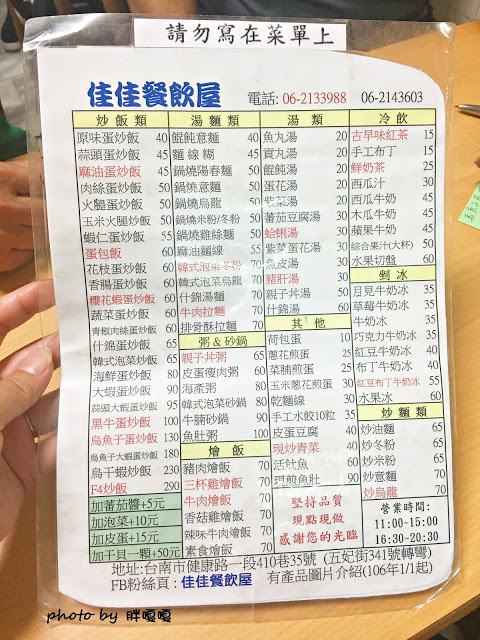 請勿寫在菜單上
佳佳餐飲屋
電話: 06-2133988 06-2143603
炒飯類
原味蛋炒飯 40
蒜頭蛋炒飯 45
麻油蛋炒飯 45
肉絲蛋炒飯 50
火腿蛋炒飯 50
玉米火腿炒飯 60
蝦仁蛋炒飯 55
蛋包飯 60
花枝蛋炒飯 60
香腸蛋炒飯 60
櫻花蝦蛋炒飯 60
蔬菜蛋炒飯 60
青椒肉絲蛋炒飯 60
什錦蛋炒飯 65
韓式泡菜炒飯 65
海鮮蛋炒飯 80
大蝦蛋炒飯 90
蒜頭大蝦蛋炒飯 95
黑牛蛋炒飯 100
烏魚子蛋炒飯 130
烏魚子大蛋炒飯 180
烏干蝦炒飯 220
F4炒飯 290
加蕃茄醬+5元
加泡菜+10元
加皮蛋+15元
加干貝一顆+50元
湯麵類
餛飩意麵 40
麵線糊 45
鍋燒陽春麵 50
鍋燒意麵 50
鍋燒烏龍 50
鍋燒米粉/冬粉 50
鍋燒雞絲麵 50
麻油麵線 55
韓式泡菜冬粉 70
韓式泡菜烏龍 70
什錦湯麵 70
牛肉拉麵 70
排骨酥拉麵 70
粥&砂鍋
親子丼粥 65
皮蛋瘦肉粥 60
海產粥 80
韓式泡菜砂鍋 80
牛腩砂鍋 90
魚肚粥 100
燴飯
豬肉燴飯 70
三杯雞燴飯 70
牛肉燴飯 70
香菇雞燴飯 70
辣味牛肉燴飯 70
素食燴飯 70
湯類
魚丸湯 20
貢丸湯 20
餛飩湯 20
蛋花湯 20
紫菜湯 20
蕃茄豆腐湯 30
蛤蜊湯 30
紫菜蛋花湯 30
魚皮湯 30
豬肝湯 30
親子丼湯 50
什錦湯 50
其他
荷包蛋 10
蔥花煎蛋 25
菜脯煎蛋 30
玉米蔥花煎蛋 30
乾麵線 30
手工水餃10粒 35
皮蛋豆腐 40
現炒青菜 40
活魷魚 60
現煎魚肚 90
堅持品質
現點現做
感謝您的光臨
冷飲
古早味紅茶 15
手工布丁 15
鮮奶茶 25
西瓜汁 30
西瓜牛奶 45
木瓜牛奶 45
蘋果牛奶 45
綜合果汁(大杯) 50
水果切盤 60
剉冰
月見牛奶冰 35
草莓牛奶冰 35
牛奶冰 35
巧克力牛奶冰 35
紅豆牛奶冰 40
布丁牛奶冰 40
紅豆布丁牛奶冰 55
水果冰 60
炒麵類
炒油麵 65
炒冬粉 65
炒米粉 65
炒意麵 70
炒烏龍 70
營業時間:
11:00-15:00
16:30-20:30
地址:台南市健康路一段410巷35號 (五妃街341號轉彎)
FB粉絲頁: 佳佳餐飲屋 有產品圖片介紹(106年1/1起)
photo by 胖嘎嘎